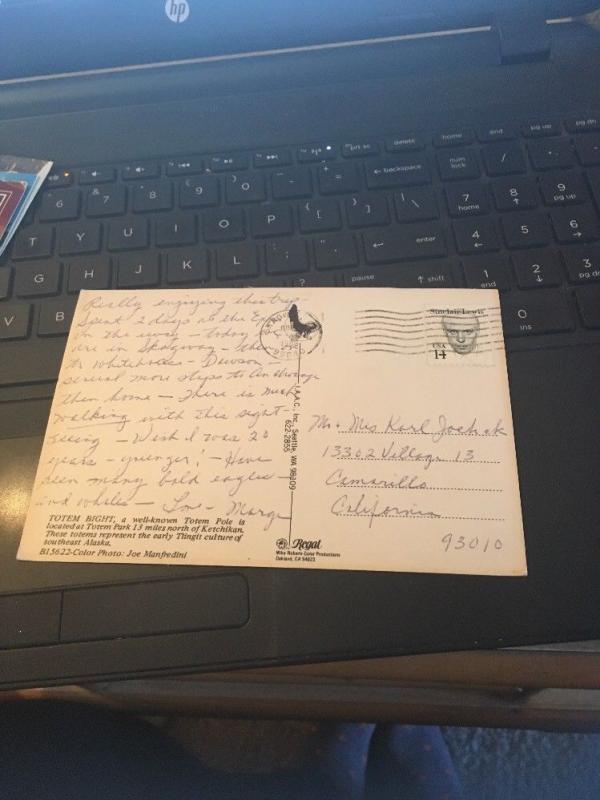 hp
prt sc
delete
home
end
pg up
pg dn
backspace
num lock
/
6
& 7
8
( 9
) 0
-
+ =
7 home
8
9 pg up
T Y U I O P { [ } ] | \
4
5
6
G H J K L : ; " '
enter
V B
pause
shift
1 end
2
3 pg dn
0 ins
Really enjoying this trip -
Spent 2 days at the
on the way - today
are in Skagway - then
to Whitehorse - Dawson -
several more stops to Anchorage
then home - There is much
walking with this sight-
seeing - Wish I was 20
years - younger! - Have
seen many bald eagles -
and whales - Love - Marge
TOTEM BIGHT, a well-known Totem Pole is
located at Totem Park 13 miles north of Ketchikan.
These totems represent the early Tlingit culture of
southeast Alaska.
B15622-Color Photo: Joe Manfredini
I.A.A.C., Inc. Seattle, WA 98109
622-2855
Regal
Mike Roberts Color Productions
Oakland, CA 94623
Sinclair Lewis
USA
14
Mr. Mrs Karl
13302 Village 13
Camarillo
California
93010